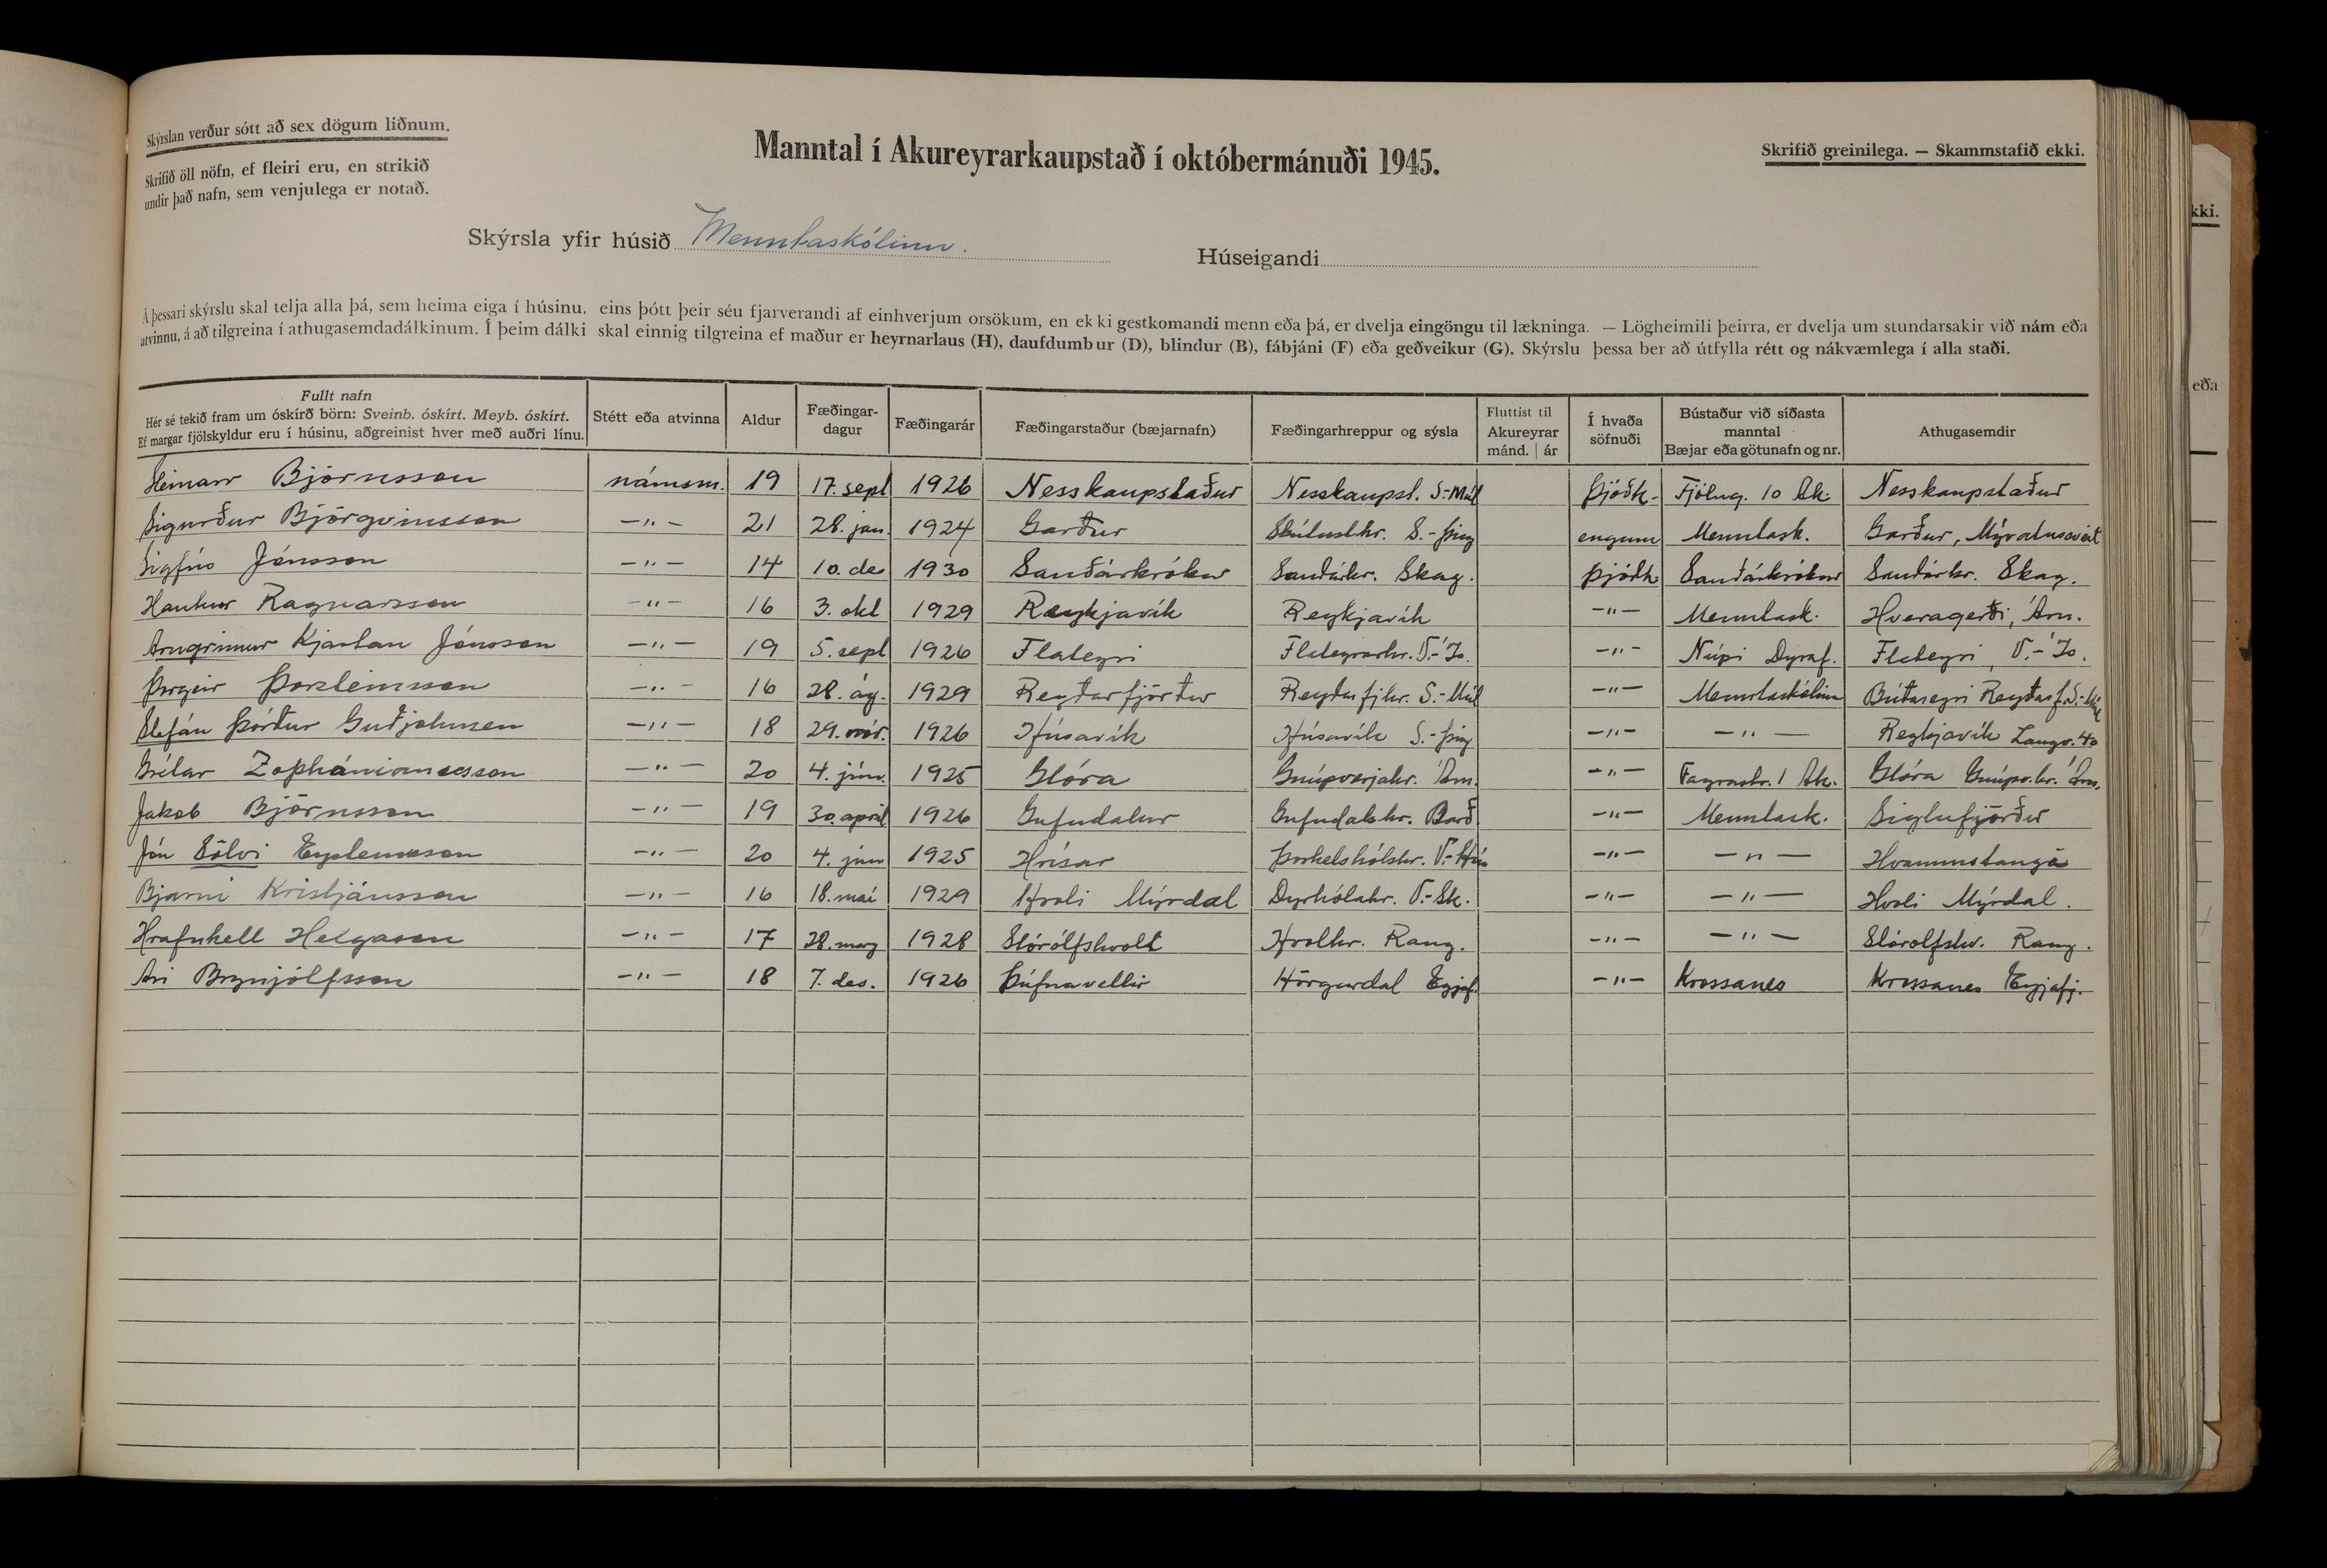 Skýrslan verður sótt að sex dögum liðnum.
Skrifið öll nöfn, ef fleiri eru, en strikið
undir það nafn, sem venjulega er notað.
Manntal í Akureyrarkaupstað í októbermánuði 1945.
Skrifið greinilega. — Skammstafið ekki.
Skýrsla yfir húsið Menntaskólinn.
Húseigandi
Á þessari skýrslu skal telja alla þá, sem heima eiga í húsinu, eins þótt þeir séu fjarverandi af einhverjum orsökum, en ekki gestkomandi menn eða þá, er dvelja eingöngu til lækninga. — Lögheimili þeirra, er dvelja um stundarsakir við nám eða
atvinnu, á að tilgreina í athugasemdadálkinum. Í þeim dálki skal einnig tilgreina ef maður er heyrnarlaus (H), daufdumbur (D), blindur (B), fábjáni (F) eða geðveikur (G). Skýrslu þessa ber að útfylla rétt og nákvæmlega í alla staði.
Fullt nafn
Hér sé tekið fram um óskírð börn: Sveinb. óskírt. Meyb. óskírt.
Ef margar fjölskyldur eru í húsinu, aðgreinist hver með auðri línu.
Stétt eða atvinna
Aldur
Fæðingar-
dagur
Fæðingarár
Fæðingarstaður (bæjarnafn)
Fæðingarhreppur og sýsla
Fluttist til
Akureyrar
mánd. | ár
Í hvaða
söfnuði
Bústaður við síðasta
manntal
Bæjar eða götunafn og nr.
Athugasemdir
Heimarr Björnsson námsm. 19 17. sept 1926 Nesskaupstaður Nesskaupst. S.-Múl Þjóðk. Fjólug. 10 Ak. Nesskaupstaður
Sigurður Björgvinsson —"— 21 28. jan. 1924 Garður Skútusthr. S.-Þing engum Menntask. Garður, Mývatnssveit
Sigfús Jónsson —"— 14 10. de 1930 Sauðárkrókur Sauðárkr. Skag. Þjóðk Sauðárkrókur Sauðárkr. Skag.
Haukur Ragnarsson —"— 16 3. okt 1929 Reykjavík Reykjavík —"— Menntask. Hveragerði, Árn.
Arngrímur Kjartan Jónsson —"— 19 5. sept 1926 Flateyri Flateyrarhr. V.-Ís. —"— Núpi Dýraf. Flateyri, V.-Ís.
Þorgeir Þorsteinsson —"— 16 28. ág. 1929 Reyðarfjörður Reyðarfjhr. S.-Múl —"— Menntaskólinn Búðareyri Reyðarf. S.-Múl
Stefán Þórður Guðjohnsen —"— 18 29. nóv. 1926 Húsavík Húsavík S.-Þing —"— —"— Reykjavík Laugv. 40
Grétar Zophóníasson —"— 20 4. jún. 1925 Glóra Gnúpverjahr. Árn. —"— Fagrastr. 1 Ak. Glóra Gnúpv.hr. Árn.
Jakob Björnsson —"— 19 30. apríl 1926 Gufudalur Gufudalshr. Barð. —"— Menntask. Siglufjörður
Jón Sölvi Eysteinsson —"— 20 4. jún 1925 Hrísar Þorkelshólshr. V.-Hún —"— —"— Hvammstangi
Bjarni Kristjánsson —"— 16 18. maí 1929 Hvoli Mýrdal Dyrhólahr. V.-Sk. —"— —"— Hvoli Mýrdal.
Hrafnkell Helgason —"— 17 28. marz 1928 Stórólfshvoll Hvolhr. Rang. —"— —"— Stórolfshv. Rang.
Ari Brynjólfsson —"— 18 7. des. 1926 Þúfnavellir Hörgurdal Eyjaf. —"— Krossanes Krossanes Eyjafj.
kki.
eða